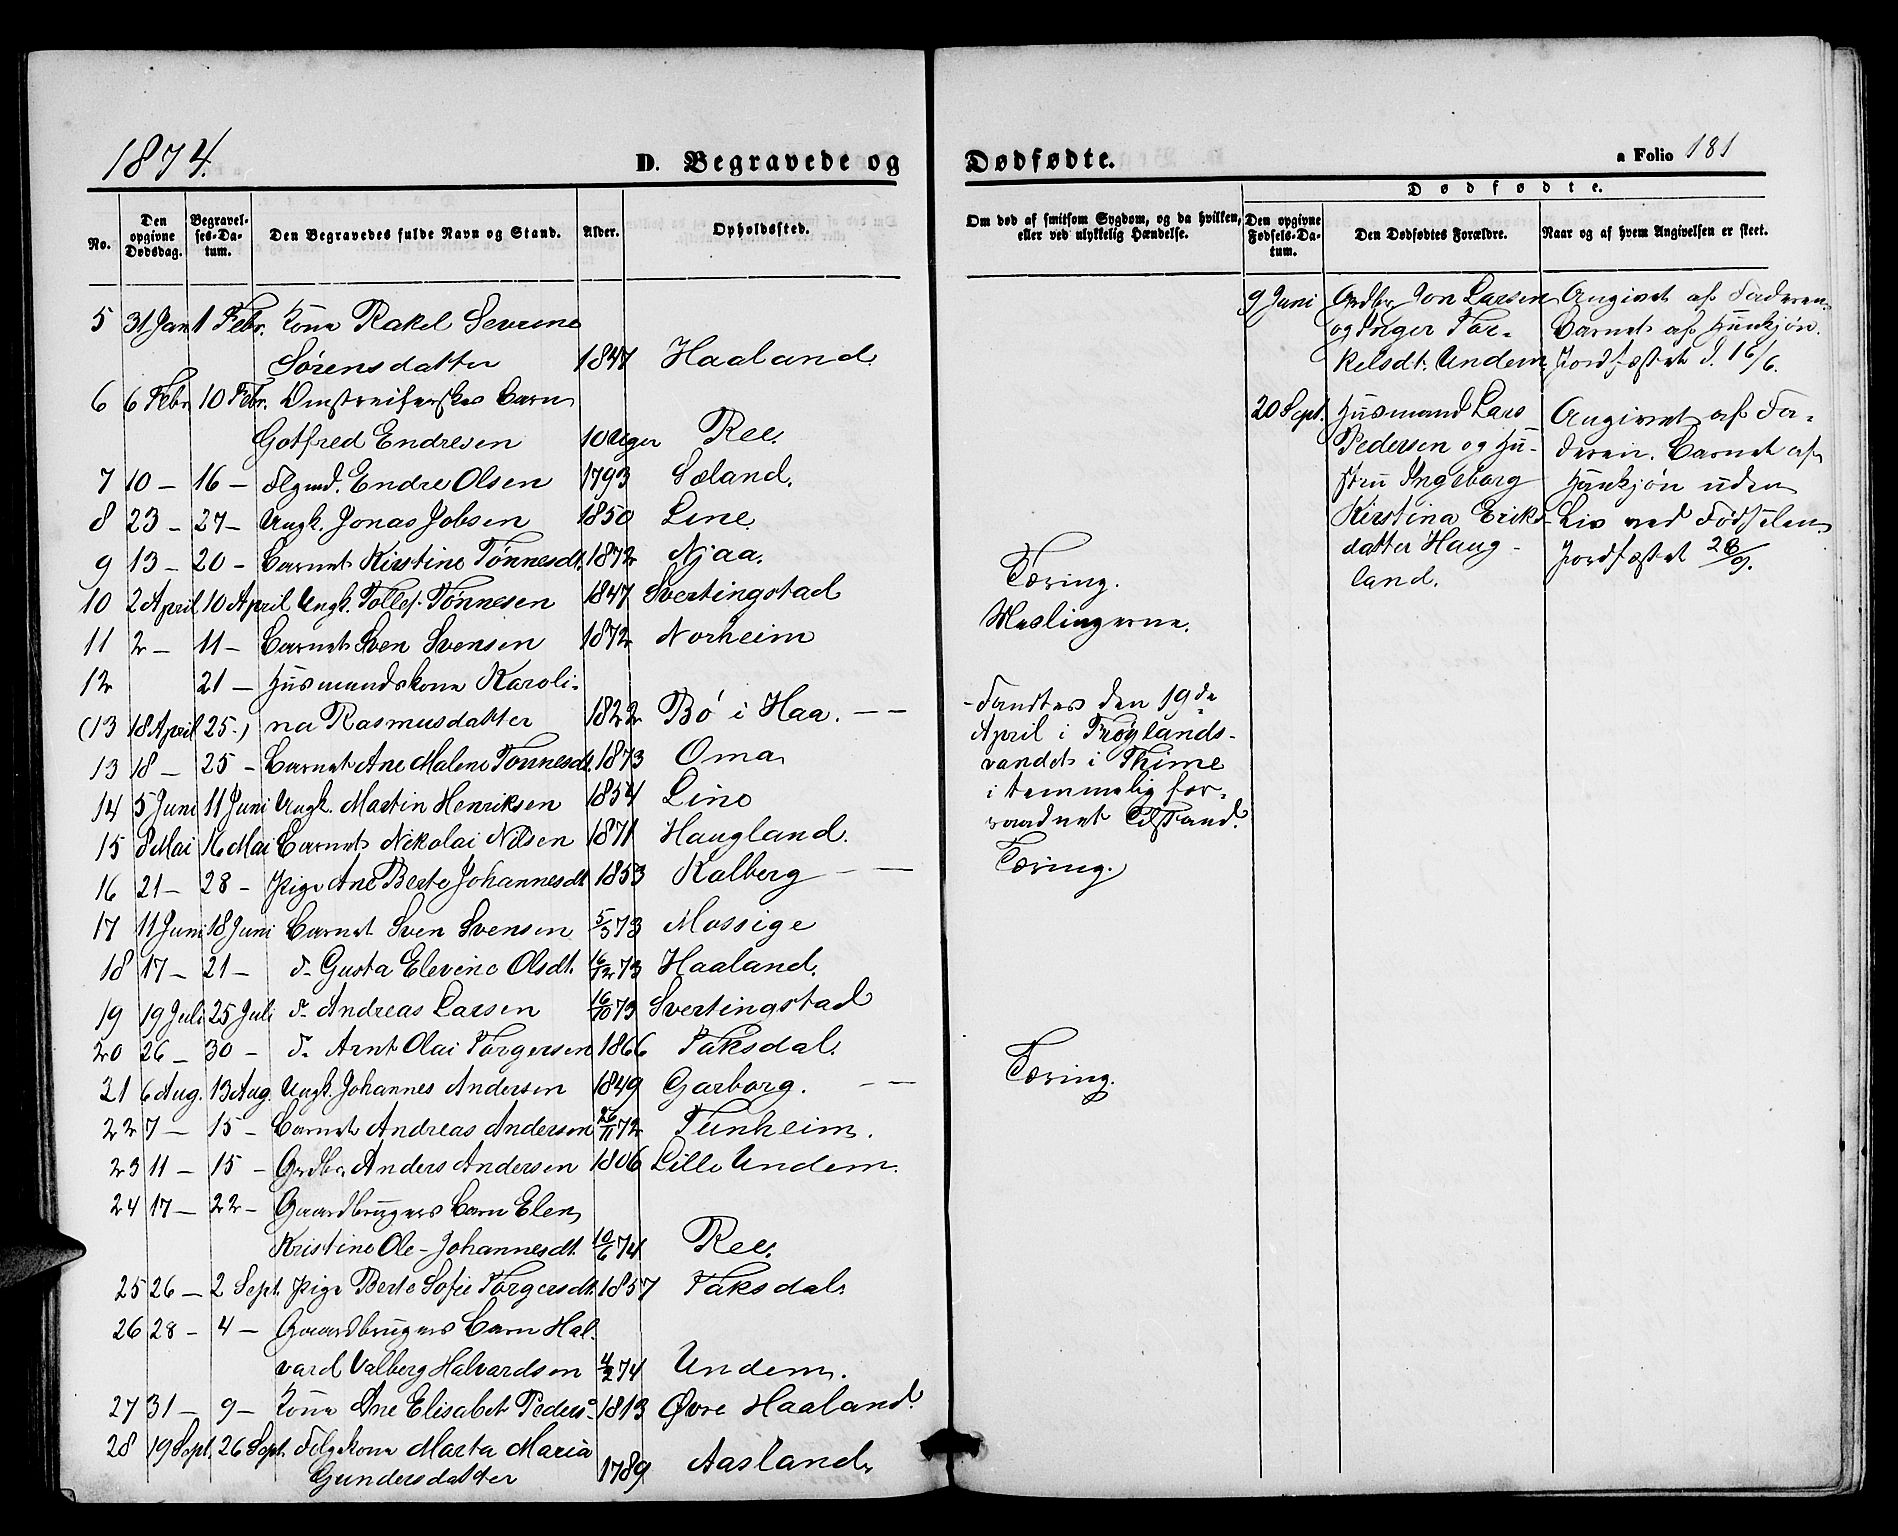 1874.
D. Begravede og
No.
Den opgivne Dødsdag.
Begravelses-Datum.
Den Begravedes fulde Navn og Stand.
Alder.
Opholdssted.
5 31 Jan 1 Febr. Kone Rakel Severine
Sørensdatter 1847 Haaland.
6 6 Febr 10 Febr. Omstreiferskes Barn
Gotfred Endresen 10 Uger Ree.
7 10 – 16 – Flgmd. Endre Olsen 1793 Sæland.
8 23 – 27 – Ungk. Jonas Jobsen 1850 Line
9 13 – 20 – Barnet Kirstine Tønnesdt. 1872 Njaa.
10 2 April 10 April Ungk. Tollef Tønnesen 1847 Svertingstad
11 2 – 11 – Barnet Sven Svensen 1872 Norheim
12 21 – Husmandskone Karoli-
(13 18 April 25.) na Rasmusdatter 1822 Bø i Haa. – –
13 18 – 25 – Barnet Ane Malene Tønnesdt. 1873 Oma
14 5 Juni 11 Juni Ungk. Martin Henriksen 1854 Line
15 8 Mai 16 Mai Barnet Nikolai Nilsen 1871 Haugland.
16 21 – 28 – Pige Ane Berte Johannesdt 1853 Kalberg – –
17 11 Juni 18 Juni Barnet Sven Svensen 5/3 73 Mossige
18 17 – 21 – d. Gusta Elevine Olsdt. 16/12 73 Haaland.
19 19 Juli 25 Juli d. Andreas Larsen 16/10 73 Svertingstad
20 26 – 30 – d. Arnt Olai Torgersen 1866 Taksdal.
21 6 Aug. 13 Aug. Ungk. Johannes Andersen 1849 Garborg. – –
22 7 – 15 – Barnet Andreas Andersen 26/11 72 Tunheim.
23 11 – 15 – Grdbr. Anders Andersen 1806 Lille Undem.
24 17 – 22 – Gaardbrugers Barn Elen
Kristine Ole-Johannesdt. 10/6 74 Ree.
25 26 – 2 Sept. Pige Berte Sofie Torgersdt. 1857 Taksdal.
26 28 – 4 – Gaardbrugers Barn Hal-
vard Valberg Halvardsen 4/2 74 Undem.
27 31 – 9 – Kone Ane Elisabet Peders- 1813 Øvre Haaland.
28 19 Sept. 26 Sept. Folgekone Marta Maria
Gundersdatter 1789 Aasland.
Dødfødte.
a Folio 181
Om død af smitsom Sygdom, og da hvilken,
eller ved ulykkelig Hændelse.
Dødfødte.
Den opgivne Fødsels-Datum.
Den Dødfødtes Forældre.
Naar og af hvem Angivelsen er skeet.
Tæring.
Meslingerne.
Fandtes den 19de
April i Frøylands-
vandet i Thime
i temmelig for-
raadnet Tilstand.
Tæring.
Tæring.
9 Juni Grdbr. Jon Larsen Angivet af Faderen.
og Inger Tor- Barnet af Hunkjøn.
kelsdt. Undem Jordfæstet d. 16/6.
20 Sept. Husmand Lars Angivet af Fa-
Pedersen og Hu- deren. Barnet af
stru Ingeborg Hunkjøn uden
Kirstina Eriks- Liv ved Fødselen
datter Haug- Jordfæstet 28/9.
land.